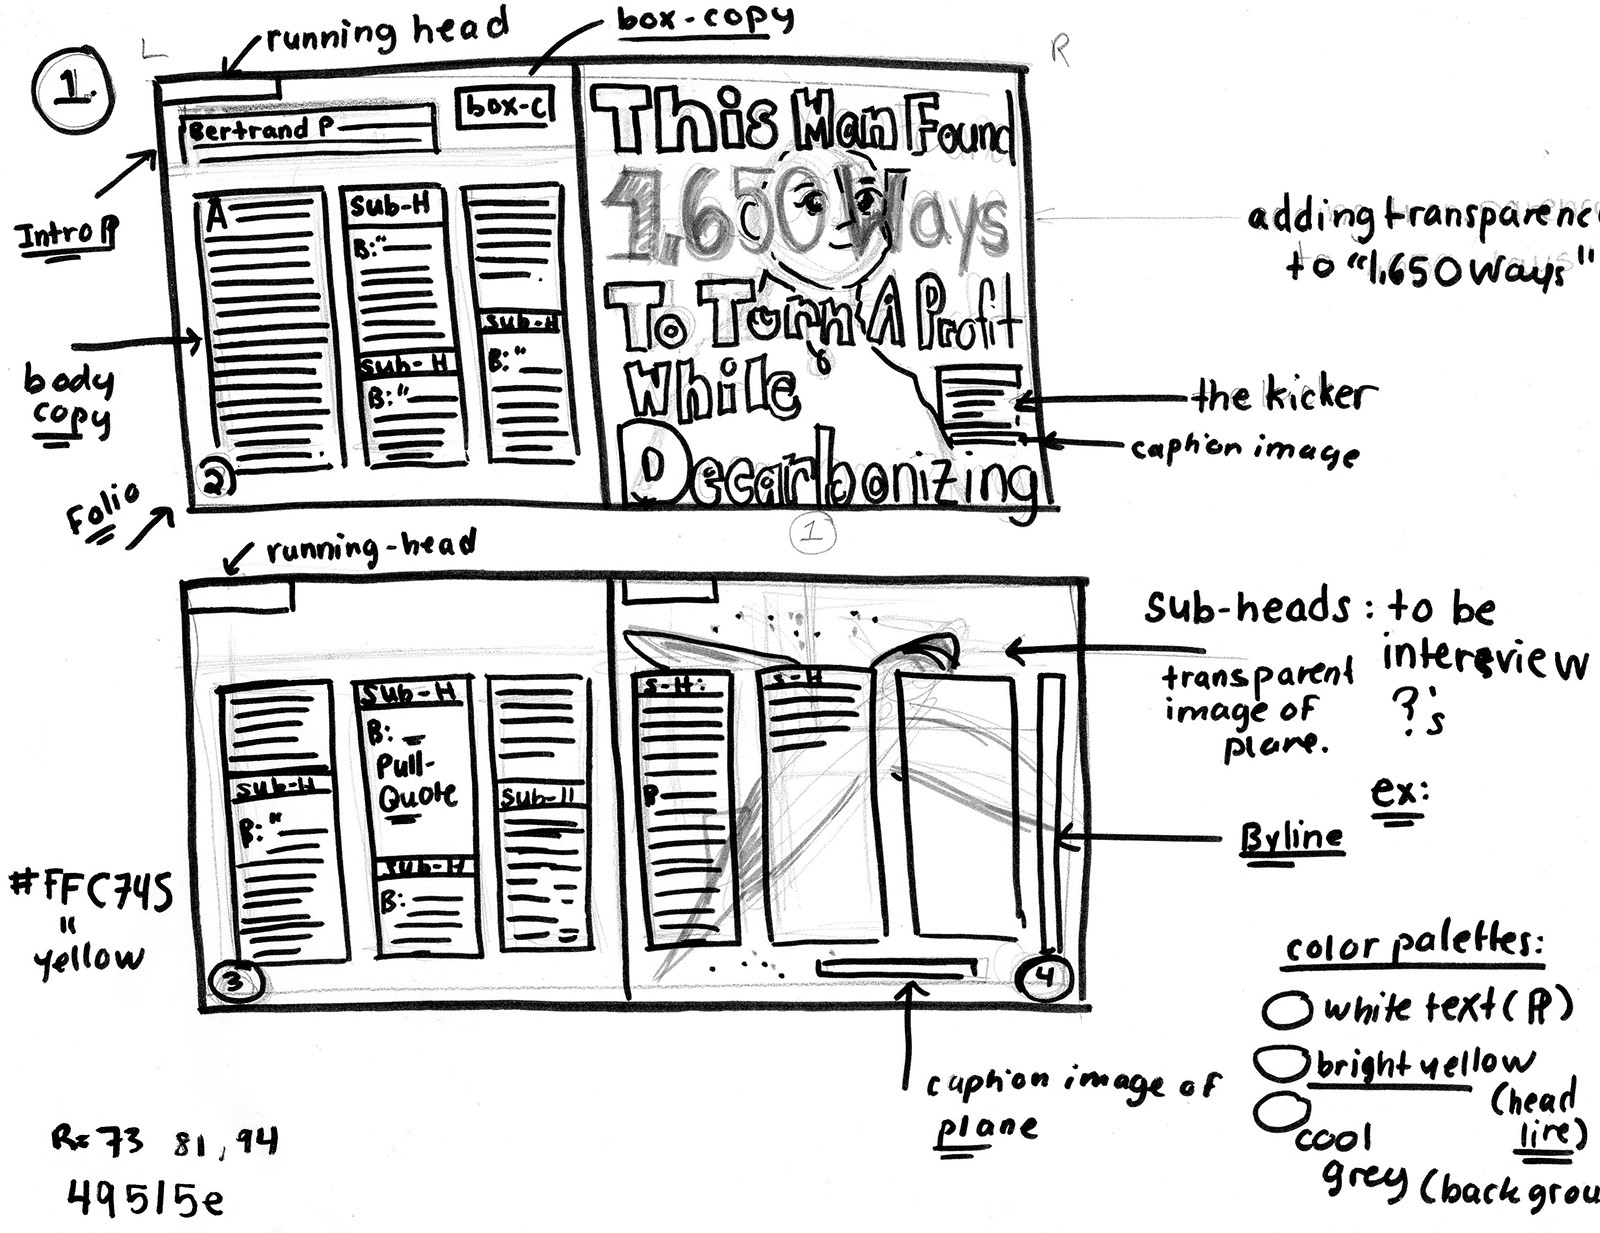 1.
L
running head
box-copy
R
box-c
Bertrand P
Intro P
A
Sub-H
B:"
sub-H
B:"
sub-H
B:"
body
copy
2
Folio
This Man Found
1,650 Ways
To Turn A Profit
While
Decarbonizing
1
adding transparenc
to "1,650 Ways"
the kicker
caption image
running-head
sub-H
B:"
Sub-H
B:
Pull-
Quote
sub-H
B:
sub-H
3
S-H:
P
S-H
4
sub-heads: to be
interview
?'s
ex:
transparent
image of
plane.
Byline
#FFC745
"
yellow
caption image of
plane
color palettes:
white text (P)
bright yellow
(head
line)
cool
grey (backgrou
R= 73 81, 94
49515e